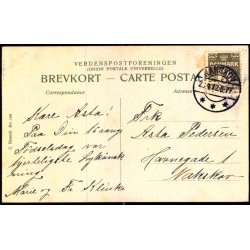 VERDENSPOSTFORENINGEN
(UNION POSTALE UNIVERSELLE)
BREVKORT – CARTE POSTALE
Correspondance
Adresse
DANMARK
Kære Asta!
Paa Din 10 aarig
Fødselsdag vor
hjerteligste Lykønsk
ning
Marie og Fr
Frk
Asta Pedersen
Havnegade 1
Nakskov